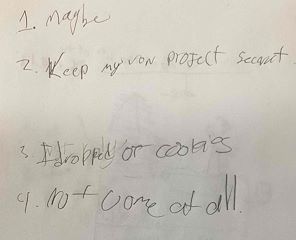 1. Maybe
2. Keep my own project secret.
3. I dropped or cookies
4. not come at all.